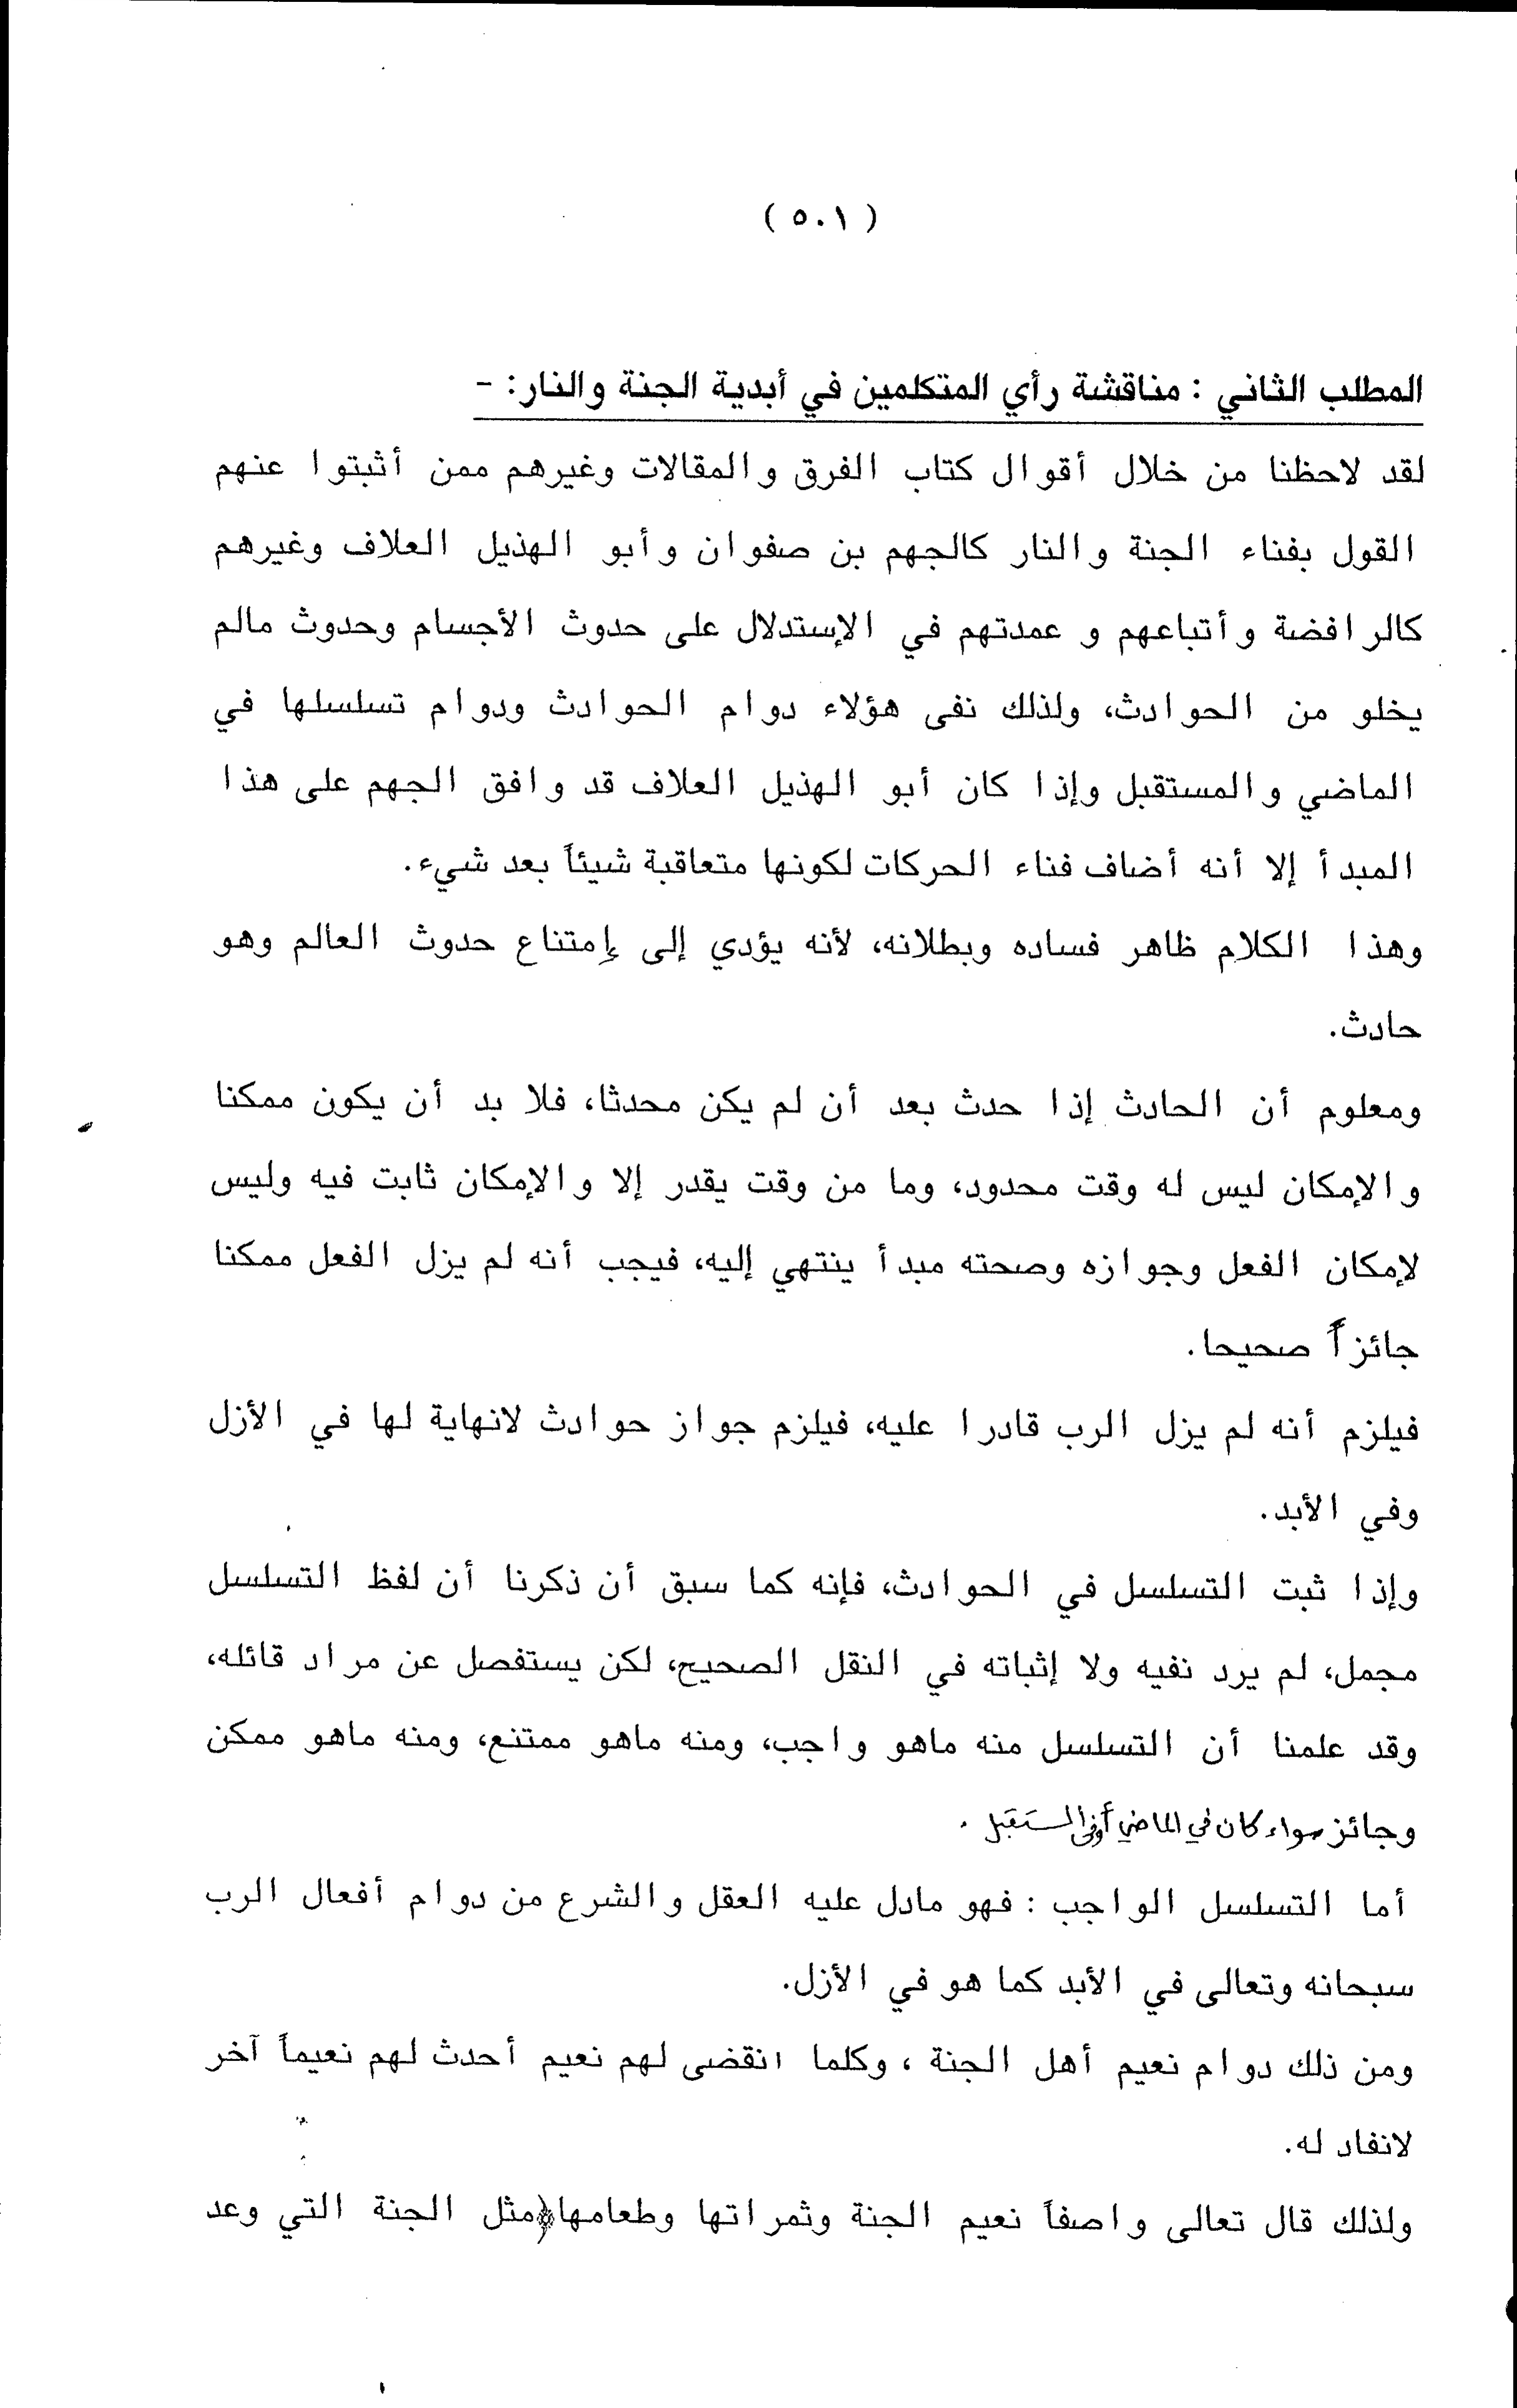 ( ٥٠١ )
المطلب الثاني : مناقشة رأي المتكلمين في أبدية الجنة والنار: -
لقد لاحظنا من خلال أقوال كتاب الفرق والمقالات وغيرهم ممن أثبتوا عنهم
القول بفناء الجنة والنار كالجهم بن صفوان وأبو الهذيل العلاف وغيرهم
كالرافضة وأتباعهم و عمدتهم في الإستدلال على حدوث الأجسام وحدوث مالم
يخلو من الحوادث، ولذلك نفى هؤلاء دوام الحوادث ودوام تسلسلها في
الماضي والمستقبل وإذا كان أبو الهذيل العلاف قد وافق الجهم على هذا
المبدأ إلا أنه أضاف فناء الحركات لكونها متعاقبة شيئاً بعد شيء.
وهذا الكلام ظاهر فساده وبطلانه، لأنه يؤدي إلى إمتناع حدوث العالم وهو
حادث.
ومعلوم أن الحادث إذا حدث بعد أن لم يكن محدثا، فلا بد أن يكون ممكنا
والإمكان ليس له وقت محدود، وما من وقت يقدر إلا والإمكان ثابت فيه وليس
لإمكان الفعل وجوازه وصحته مبدأ ينتهي إليه، فيجب أنه لم يزل الفعل ممكنا
جائزاً صحيحا.
فيلزم أنه لم يزل الرب قادرا عليه، فيلزم جواز حوادث لانهاية لها في الأزل
وفي الأبد.
وإذا ثبت التسلسل في الحوادث، فإنه كما سبق أن ذكرنا أن لفظ التسلسل
مجمل، لم يرد نفيه ولا إثباته في النقل الصحيح، لكن يستفصل عن مراد قائله،
وقد علمنا أن التسلسل منه ماهو واجب، ومنه ماهو ممتنع، ومنه ماهو ممكن
وجائز سواء كان في الماضي أو في المستقبل .
أما التسلسل الواجب : فهو مادل عليه العقل والشرع من دوام أفعال الرب
سبحانه وتعالى في الأبد كما هو في الأزل.
ومن ذلك دوام نعيم أهل الجنة ، وكلما انقضى لهم نعيم أحدث لهم نعيماً آخر
لانفاد له.
ولذلك قال تعالى واصفاً نعيم الجنة وثمراتها وطعامها﴿مثل الجنة التي وعد